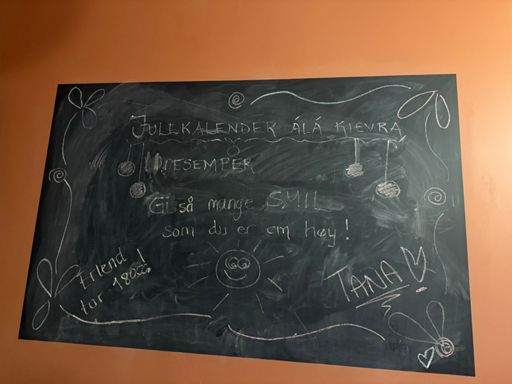 JULEKALENDER ÁLÁ KIEVRA
1 DESEMBER
Gi så mange SMIL
som du er cm høy!
Erlend
tar 180!
TANA